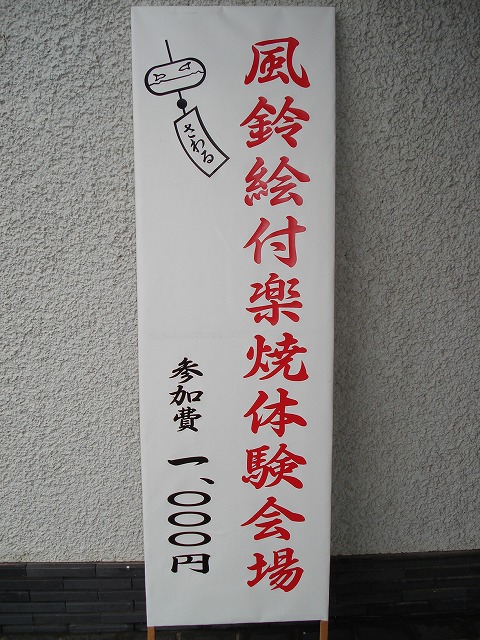 風鈴絵付楽焼体験会場
さわる
参加費 一、〇〇〇円